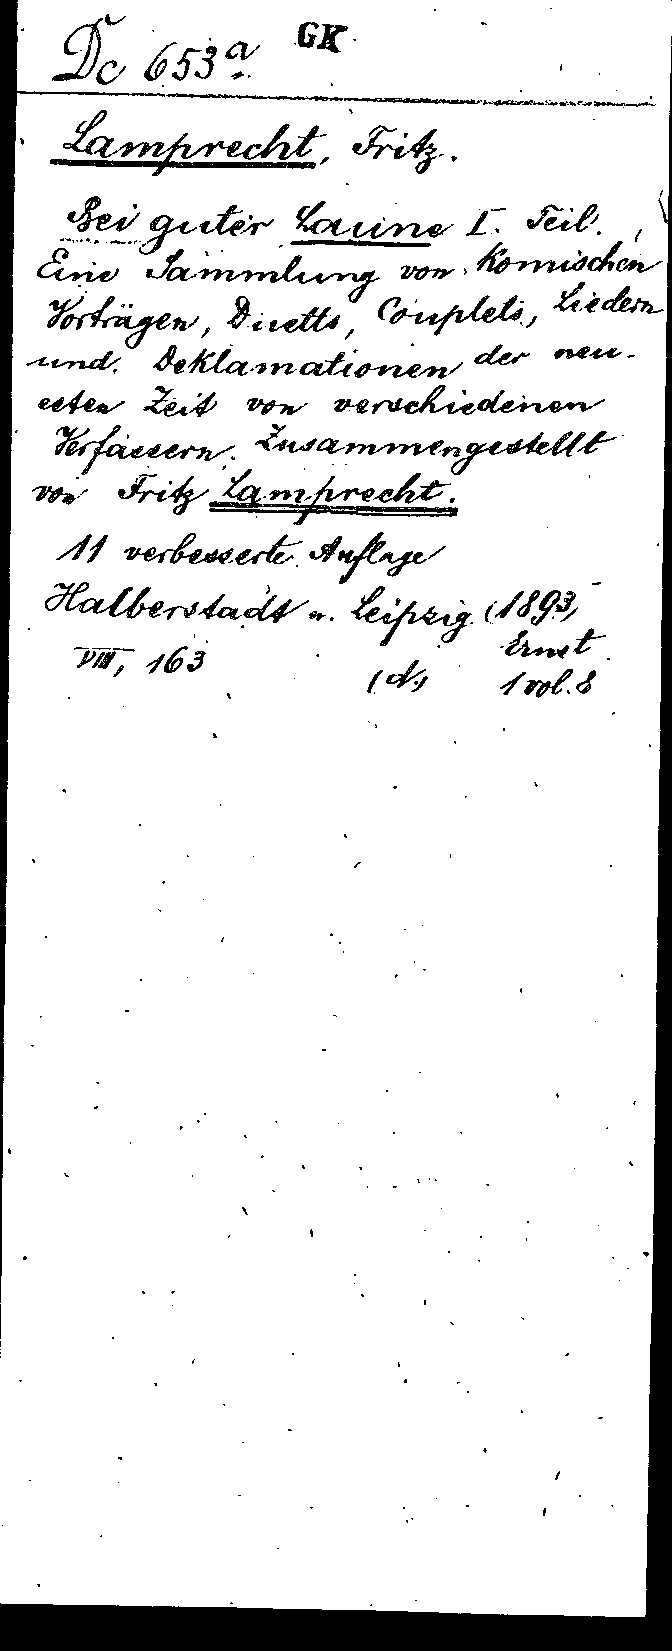 Dc 653a. GK
Lamprecht, Fritz.
Bei guter Laune I. Teil.
Eine Sammlung von Komischen
Vorträgen, Duetts, Couplets, Liedern
und Deklamationen der neu-
esten Zeit von verschiedenen
Verfassern. Zusammengestellt
von Fritz Lamprecht.
11 verbesserte Auflage
Halberstadt u. Leipzig (1893)
Ernst
VIII, 163 (N.) 1 vol. 8